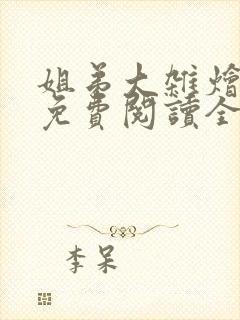 姐弟大雜燴
免費閱讀全
李呆